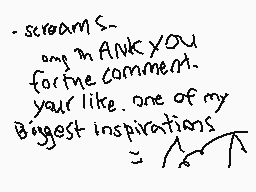 - screams -
omg ThANK YOU
for the comment.
your like. one of my
Biggest inspirations